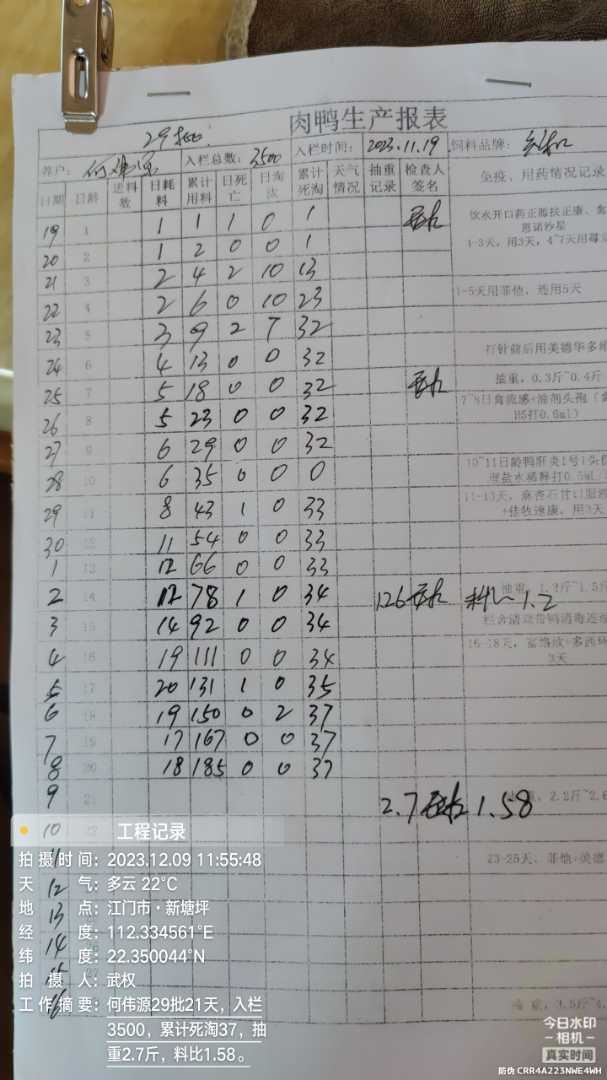 肉鸭生产报表
29批
养户: 何伟源 入栏总数: 3500 入栏时间: 2023.11.19 饲料品牌:
日期 日龄 进料数 日耗料 累计用料 日死亡 日淘汰 累计死淘 天气情况 抽重记录 检查人签名 免疫、用药情况记录
19 1 1 1 1 0 1
20 2 1 2 0 0 1 1-3天，用3天，4~7天用
21 3 2 4 2 10 13
22 4 2 6 0 10 23 1-5天用菲他，连用5天
23 5 3 9 2 7 32
24 6 4 13 0 0 32 打针前后用美德华多维
25 7 5 18 0 0 32 抽重，0.3斤~0.4斤
26 8 5 23 0 0 32 7~8日禽流感+油剂头孢（禽
H5打0.6ml）
27 9 6 29 0 0 32
28 10 6 35 0 0 0 10~11日龄鸭肝炎1号1头份
29 11 8 43 1 0 33 11-13天，麻杏石甘口服液
30 12 11 54 0 0 33
1 13 12 66 0 0 33
2 14 12 78 1 0 34 126 料比1.2
3 15 14 92 0 0 34
4 16 19 111 0 0 34
5 17 20 131 1 0 35
6 18 19 150 0 2 37
7 19 17 167 0 0 37
8 20 18 185 0 0 37
9 21 2.7 1.58 2.2斤~2.6
10
23-25天，菲他+美德
12
13
14
工程记录
拍摄时间: 2023.12.09 11:55:48
天气: 多云 22°C
地点: 江门市·新塘坪
经度: 112.334561°E
纬度: 22.350044°N
拍摄人: 武权
工作摘要: 何伟源29批21天，入栏
3500，累计死淘37，抽
重2.7斤，料比1.58。
今日水印
-相机-
真实时间
防伪 CRR4A223NWE4WH